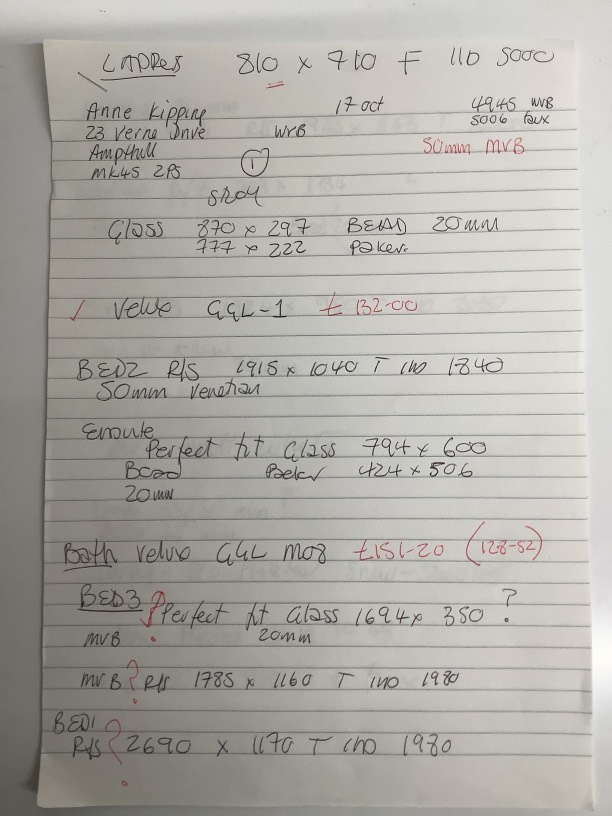 LADDRES 810 x 710 F 110 5000
Anne Kipping 17 oct 4945 WVB
23 Verne Drive WVB 5006 faux
Ampthill 50mm MVB
MK45 2PS 1
Glass 870 x 297 BEAD 20mm
777 x 222
✓ Velux GGL-1 £132-00
BED2 R/S 1915 x 1040 T ino 1840
50mm Venetian
Ensuite
Perfect fit Glass 794 x 600
Bead 424 x 506
20mm
Bath velux GGL M08 £151-20 (128-52)
BED3 ? Perfect fit Glass 1694 x 350 ?
MVB 20mm
MVB ? R/S 1785 x 1160 T ino 1980
BED1
R/S ? 2690 x 1170 T ino 1980